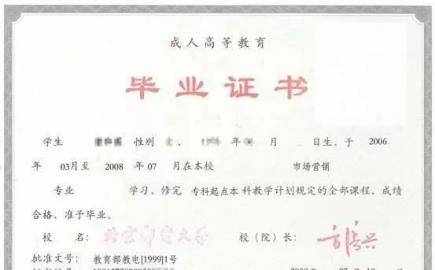 成人高等教育
毕业证书
学生 性别 年 月 日生、于 2006
年 03月至 2008 年 07 月在本校 市场营销
专业 学习、修完 专科起点本 科教学计划规定的全部课程、成绩
合格、准予毕业。
校 名: 北京邮电大学 校（院）长:
批准文号: 教育部教电[1999]1号